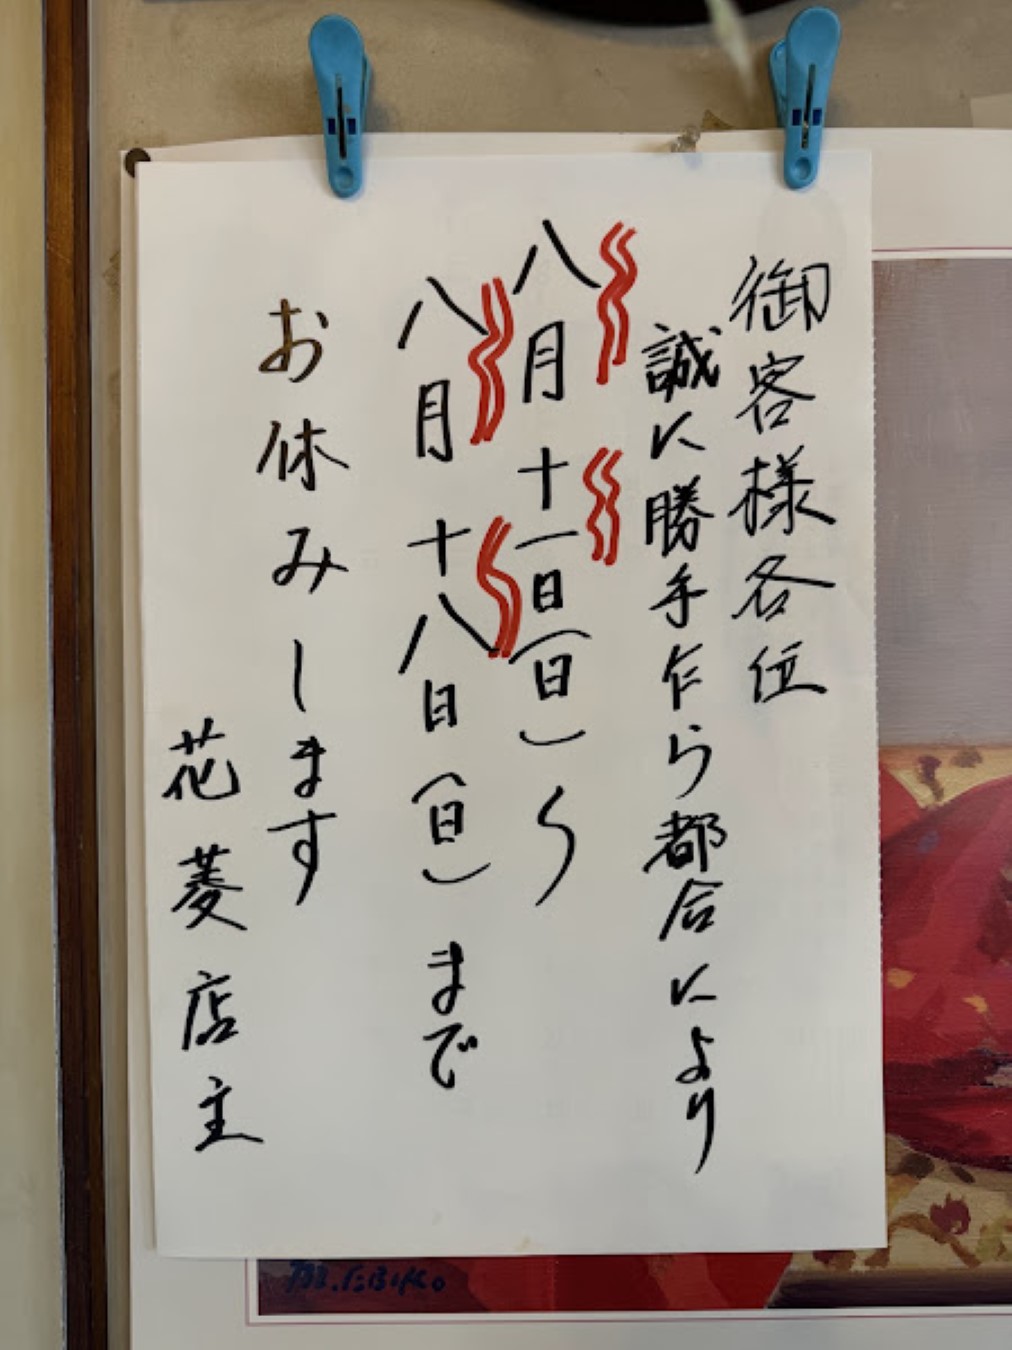 御客様各位
誠に勝手乍ら都合により
八月十一日(日)〜
八月十八日(日)まで
お休みします
花菱店主